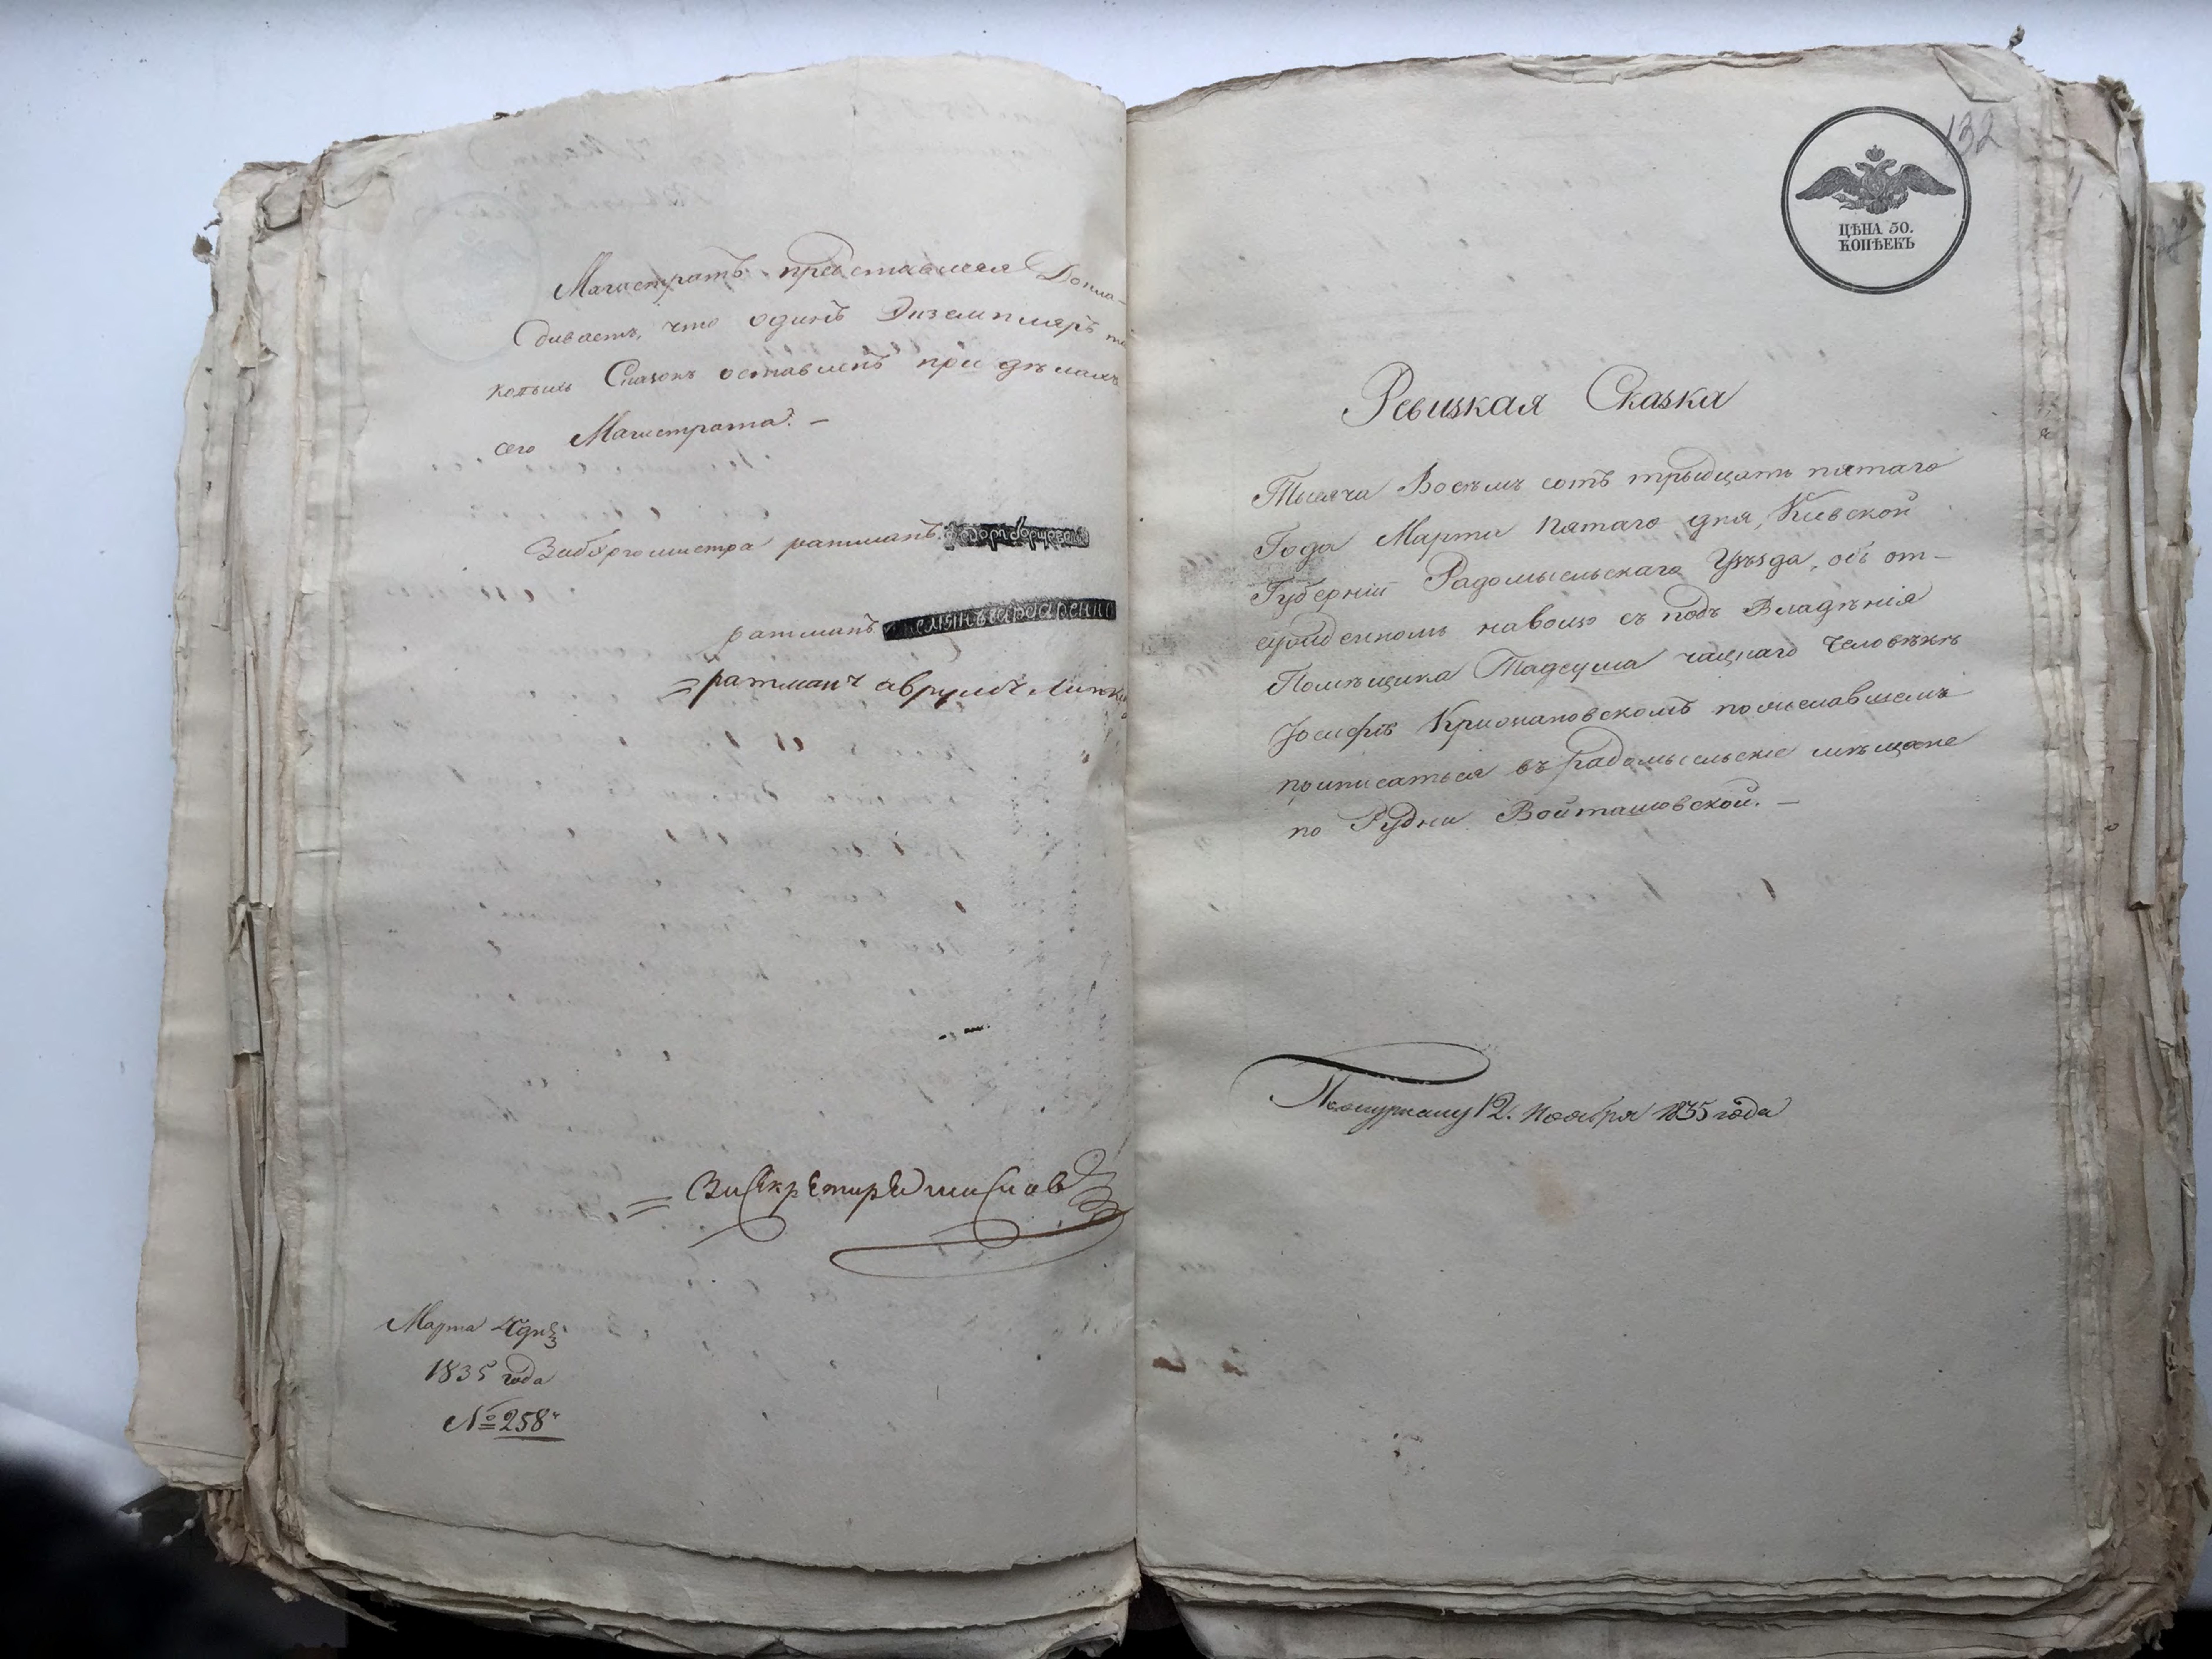 Магистратъ представляя Докла-
дываетъ, что одинъ Экземпляръ та
ковыхъ Сказокъ оставленъ при дѣлахъ
сего Магистрата. —
Забургомистра ратманъ
ратманъ
= ратманъ аврумъ
= За Секретаря
Марта дня
1835 года
№ 258
132
ЦѢНА 50.
КОПѢЕКЪ
Ревизкая Сказка
Тысяча Восемь сотъ тридцать пятаго
Года Марта пятаго дня, Киевской
Губерніи Радомысльскаго Уѣзда, объ от-
пущенномъ наволю съ подъ Владѣнія
Помѣщика Тадеуша чацкаго Человѣкѣ
Іосифѣ помыславшемъ
приписаться въ радомысльскіе мѣщане
по Рудни Войташовской. —
12. Ноября 1835 года